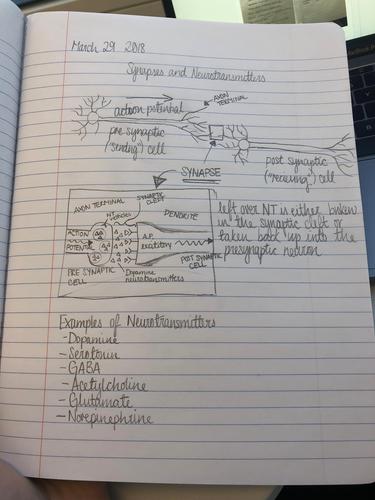 March 29 2018
Synapses and Neurotransmitters
AXON
TERMINAL
action potential
pre synaptic
("sending") cell
post synaptic
("recieving") cell
SYNAPSE
AXON TERMINAL
SYNAPTIC
CLEFT
DENDRITE
ACTION
POTENTIAL
A.P.
excitatory
PRE SYNAPTIC
CELL
Dopamine
neurotransmitters
POST SYNAPTIC
CELL
left over NT is either broken
in the synaptic cleft or
taken back up into the
presynaptic neuron.
Examples of Neurotransmitters
- Dopamine
- Serotonin
- GABA
- Acetylcholine
- Glutamate
- Norepinephrine